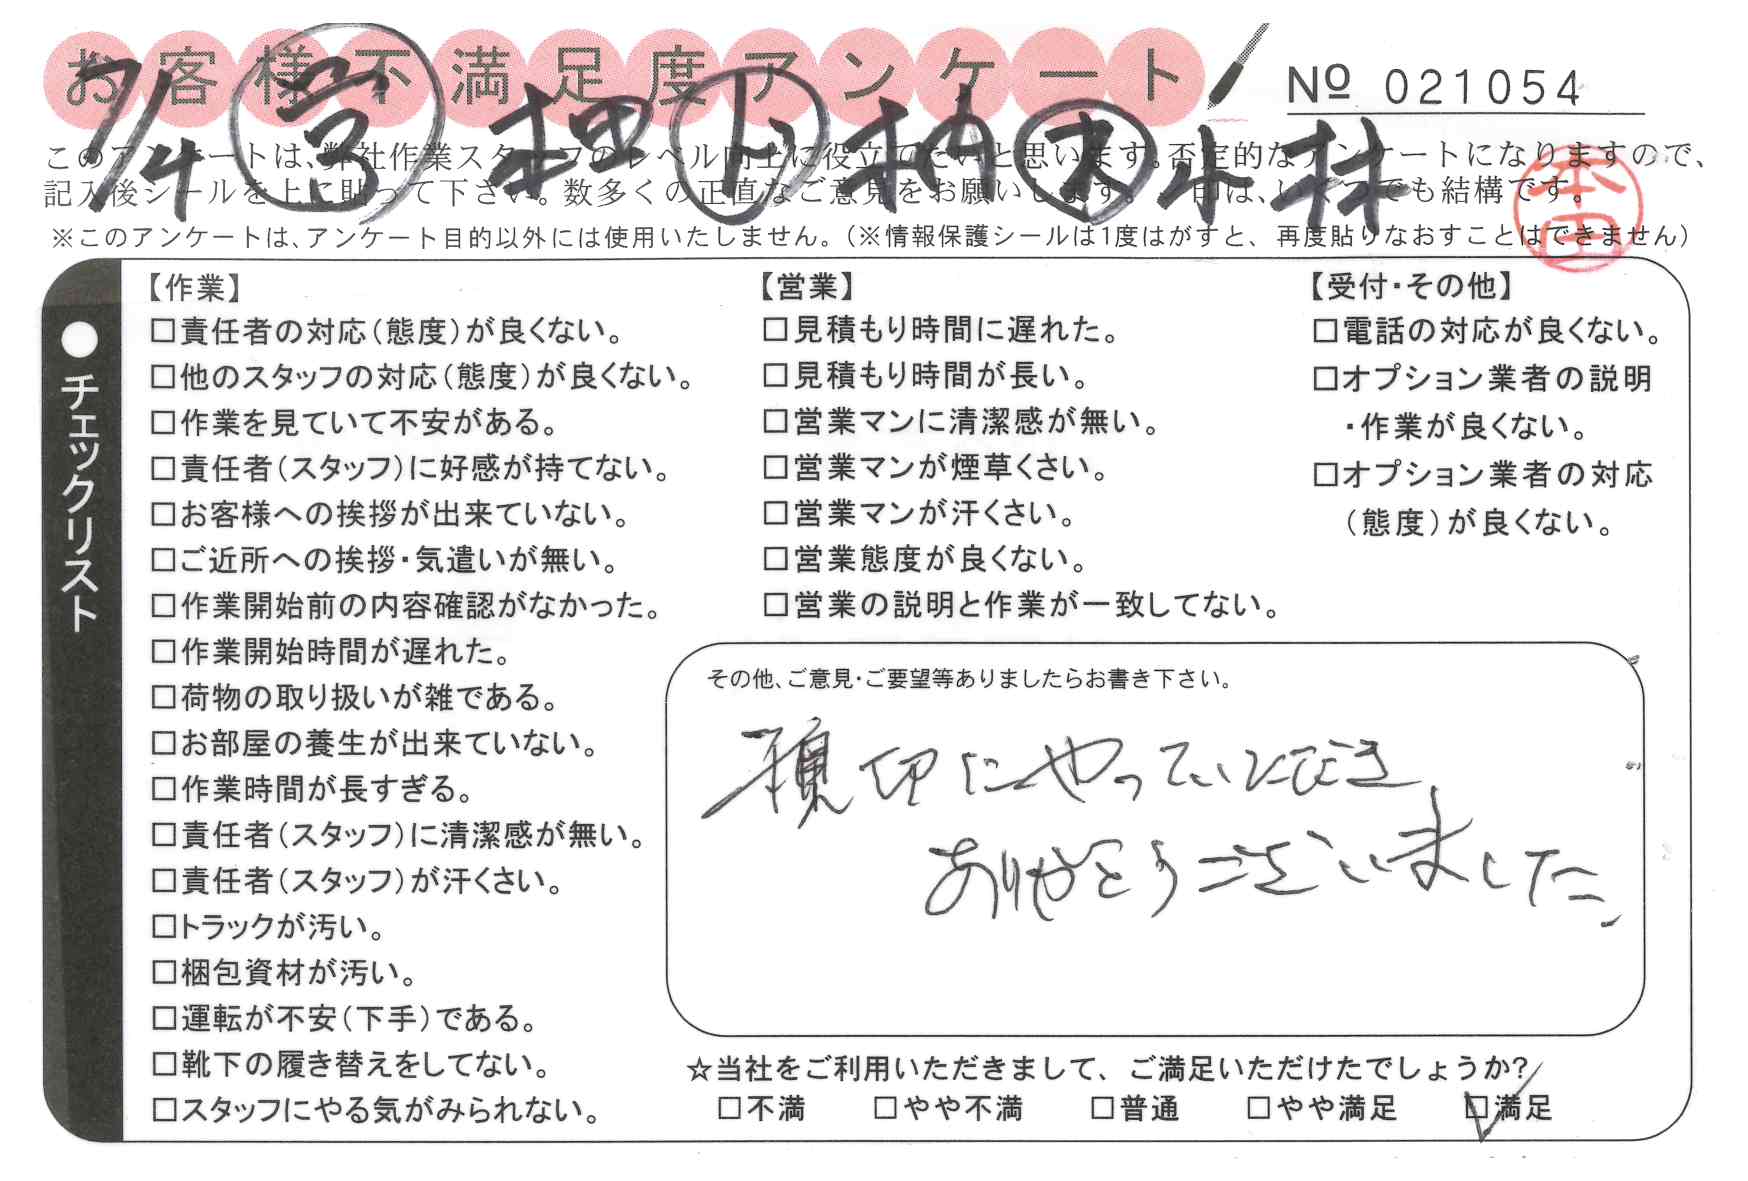 お客様不満足度アンケート
№ 021054
7/4 営 押 ト 柚 木 小林
このアンケートは、弊社作業スタッフのレベル向上に役立てたいと思います。否定的なアンケートになりますので、
記入後シールを上に貼って下さい。数多くの正直なご意見をお願いします。レ印は、いくつでも結構です。
※このアンケートは、アンケート目的以外には使用いたしません。（※情報保護シールは1度はがすと、再度貼りなおすことはできません）
本田
●チェックリスト
【作業】
□責任者の対応（態度）が良くない。
□他のスタッフの対応（態度）が良くない。
□作業を見ていて不安がある。
□責任者（スタッフ）に好感が持てない。
□お客様への挨拶が出来ていない。
□ご近所への挨拶・気遣いが無い。
□作業開始前の内容確認がなかった。
□作業開始時間が遅れた。
□荷物の取り扱いが雑である。
□お部屋の養生が出来ていない。
□作業時間が長すぎる。
□責任者（スタッフ）に清潔感が無い。
□責任者（スタッフ）が汗くさい。
□トラックが汚い。
□梱包資材が汚い。
□運転が不安（下手）である。
□靴下の履き替えをしてない。
□スタッフにやる気がみられない。
【営業】
□見積もり時間に遅れた。
□見積もり時間が長い。
□営業マンに清潔感が無い。
□営業マンが煙草くさい。
□営業マンが汗くさい。
□営業態度が良くない。
□営業の説明と作業が一致してない。
【受付・その他】
□電話の対応が良くない。
□オプション業者の説明
・作業が良くない。
□オプション業者の対応
（態度）が良くない。
その他、ご意見・ご要望等ありましたらお書き下さい。
親切にやっていただき
ありがとうございました。
☆当社をご利用いただきまして、ご満足いただけたでしょうか?
□不満 □やや不満 □普通 □やや満足 ☑満足